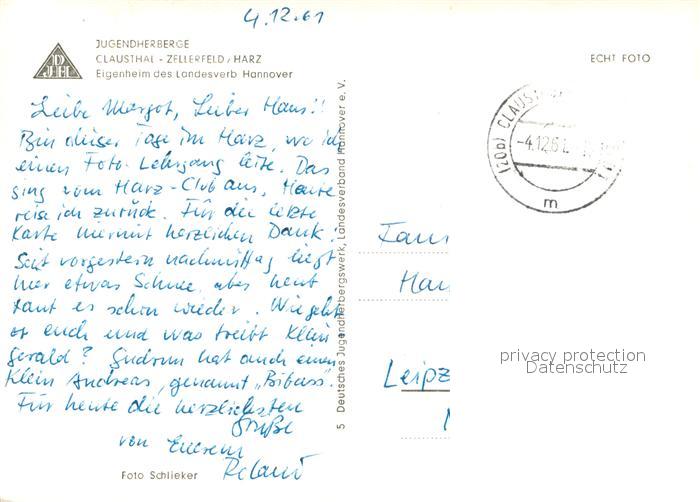 4.12.61
JUGENDHERBERGE
CLAUSTHAL - ZELLERFELD / HARZ
Eigenheim des Landesverb Hannover
DJH
ECHT FOTO
Liebe Margot, Lieber Hans!!
Bin dieser Tage im Harz, wo ich
einen Foto-Lehrgang leite. Das
ging vom Harz-Club aus. Heute
reise ich zurück. Für die letzte
Karte hiermit herzlichen Dank!
Seit vorgestern nachmittag liegt
hier etwas Schnee, aber heut
taut es schon wieder. Wie geht
es euch und was treibt Klein
Gerald? Gudrun hat auch einen
Klein Andreas, genannt „Bibass".
Für heute die herzlichsten
Grüße
von Eurem
Roland
Foto Schlieker
5 Deutsches Jugendherbergswerk, Landesverband Hannover e. V.
(20b) CLAUST
-4.12.61
m
Fam
Han
Leipz
privacy protection
Datenschutz